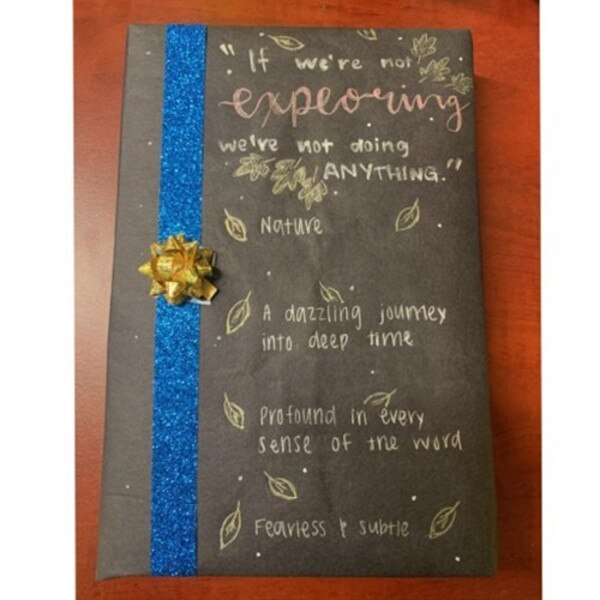 "If we're not
expeoring
we're not doing
ANYTHING."
Nature
A dazzling journey
into deep time
Profound in every
sense of the word
Fearless & subtle